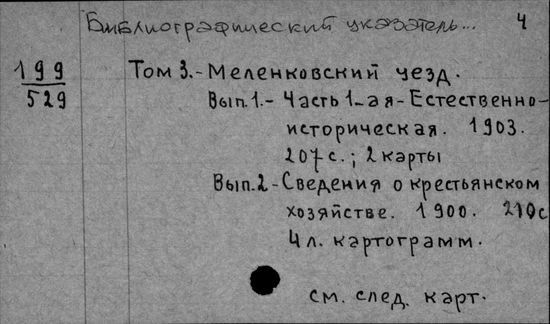 Библиографический указатель... 4
199
529
Том 3.- Меленковский уезд.
Вып.1.- Часть 1-ая - Естественно-
историческая. 1903.
207 с.; 2 карты
Вып.2 - Сведения о крестьянском
хозяйстве. 1900. 210с
4 л. картограмм.
см. след. карт.